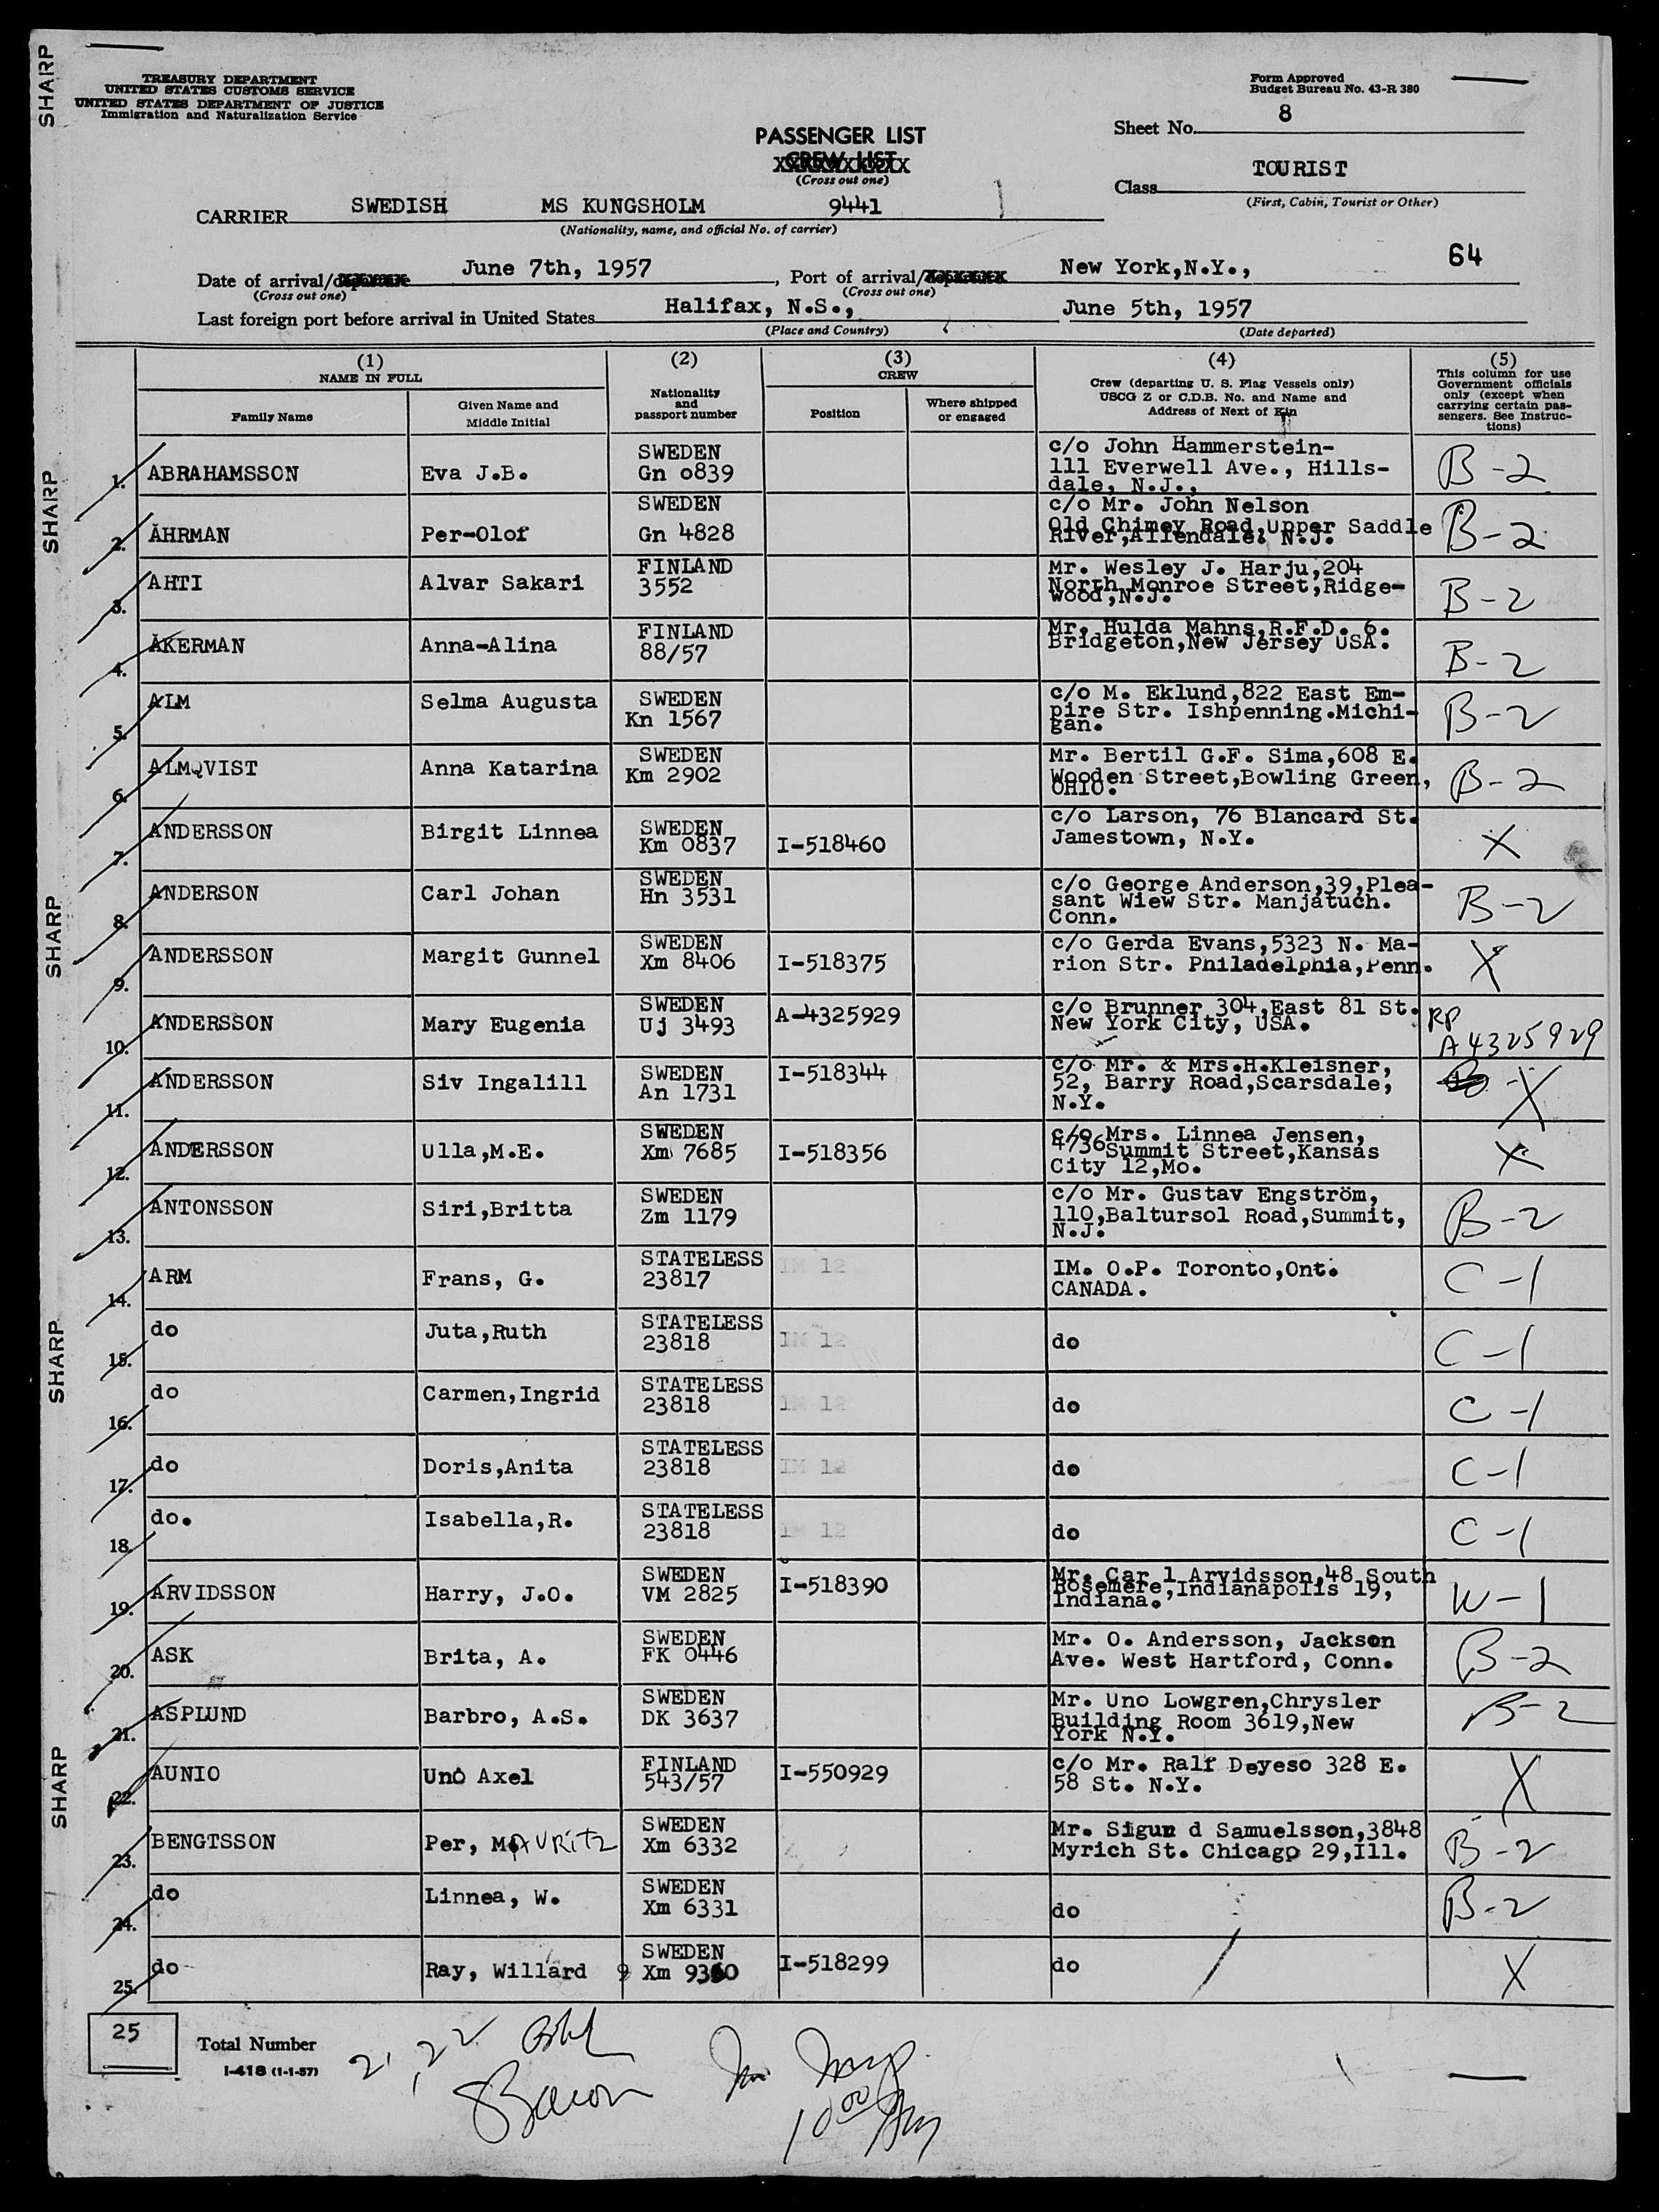 SHARP
SHARP
SHARP
SHARP
SHARP
TREASURY DEPARTMENT
UNITED STATES CUSTOMS SERVICE
UNITED STATES DEPARTMENT OF JUSTICE
Immigration and Naturalization Service
Form Approved
Budget Bureau No. 43-R 380
Sheet No. 8
PASSENGER LIST
CREW LIST
(Cross out one)
Class TOURIST
(First, Cabin, Tourist or Other)
CARRIER SWEDISH MS KUNGSHOLM 9441
(Nationality, name, and official No. of carrier)
64
Date of arrival/departure June 7th, 1957, Port of arrival/departure New York,N.Y.,
(Cross out one) (Cross out one)
Last foreign port before arrival in United States Halifax, N.S., June 5th, 1957
(Place and Country) (Date departed)
(1) (2) (3) (4) (5)
NAME IN FULL
Family Name
Given Name and
Middle Initial
Nationality
and
passport number
CREW
Position
Where shipped
or engaged
Crew (departing U. S. Flag Vessels only)
USCG Z or C.D.B. No. and Name and
Address of Next of Kin
This column for use
Government officials
only (except when
carrying certain pas-
sengers. See Instruc-
tions)
1. ABRAHAMSSON Eva J.B. SWEDEN
Gn 0839
c/o John Hammerstein-
111 Everwell Ave., Hills-
dale, N.J.,
B-2
2. ÅHRMAN Per-Olof SWEDEN
Gn 4828
c/o Mr. John Nelson
Old Chimey Road,Upper Saddle
River,Allendale. N.J.
B-2
3. AHTI Alvar Sakari FINLAND
3552
Mr. Wesley J. Harju,204
North Monroe Street,Ridge-
wood,N.J.
B-2
4. ÅKERMAN Anna-Alina FINLAND
88/57
Mr. Hulda Mahns,R.F.D. 6.
Bridgeton,New Jersey USA.
B-2
5. ALM Selma Augusta SWEDEN
Kn 1567
c/o M. Eklund,822 East Em-
pire Str. Ishpenning.Michi-
gan.
B-2
6. ALMQVIST Anna Katarina SWEDEN
Km 2902
Mr. Bertil G.F. Sima,608 E.
Wooden Street,Bowling Green,
OHIO.
B-2
7. ANDERSSON Birgit Linnea SWEDEN
Km 0837
I-518460
c/o Larson, 76 Blancard St.
Jamestown, N.Y.
X
8. ANDERSON Carl Johan SWEDEN
Hn 3531
c/o George Anderson,39,Plea-
sant Wiew Str. Manjatuch.
Conn.
B-2
9. ANDERSSON Margit Gunnel SWEDEN
Xm 8406
I-518375
c/o Gerda Evans,5323 N. Ma-
rion Str. Philadelphia,Penn.
X
10. ANDERSSON Mary Eugenia SWEDEN
Uj 3493
A-4325929
c/o Brunner 304,East 81 St.
New York City, USA.
RP
A4325929
11. ANDERSSON Siv Ingalill SWEDEN
An 1731
I-518344
c/o Mr. & Mrs.H.Kleisner,
52, Barry Road,Scarsdale,
N.Y.
X
12. ANDERSSON Ulla,M.E. SWEDEN
Xm 7685
I-518356
c/o Mrs. Linnea Jensen,
4736 Summit Street,Kansas
City 12,Mo.
X
13. ANTONSSON Siri,Britta SWEDEN
Zm 1179
c/o Mr. Gustav Engström,
110,Baltursol Road,Summit,
N.J.
B-2
14. ARM Frans, G. STATELESS
23817
IM 12
IM. O.P. Toronto,Ont.
CANADA.
C-1
15. do Juta,Ruth STATELESS
23818
IM 12
do
C-1
16. do Carmen,Ingrid STATELESS
23818
IM 12
do
C-1
17. do Doris,Anita STATELESS
23818
IM 12
do
C-1
18. do. Isabella,R. STATELESS
23818
IM 12
do
C-1
19. ARVIDSSON Harry, J.O. SWEDEN
VM 2825
I-518390
Mr. Car l Arvidsson,48 South
Rosemere,Indianapolis 19,
Indiana.
W-1
20. ASK Brita, A. SWEDEN
FK 0446
Mr. O. Andersson, Jackson
Ave. West Hartford, Conn.
B-2
21. ASPLUND Barbro, A.S. SWEDEN
DK 3637
Mr. Uno Lowgren,Chrysler
Building Room 3619,New
York N.Y.
B-2
22. AUNIO Uno Axel FINLAND
543/57
I-550929
c/o Mr. Ralf Deyeso 328 E.
58 St. N.Y.
X
23. BENGTSSON Per, MAURITZ SWEDEN
Xm 6332
Mr. Sigun d Samuelsson,3848
Myrich St. Chicago 29,Ill.
B-2
24. do Linnea, W. SWEDEN
Xm 6331
do
B-2
25. do Ray, Willard 9 SWEDEN
Xm 9360
I-518299
do
X
25 Total Number
I-418 (1-1-57)
2, 22
Bacon
10 00